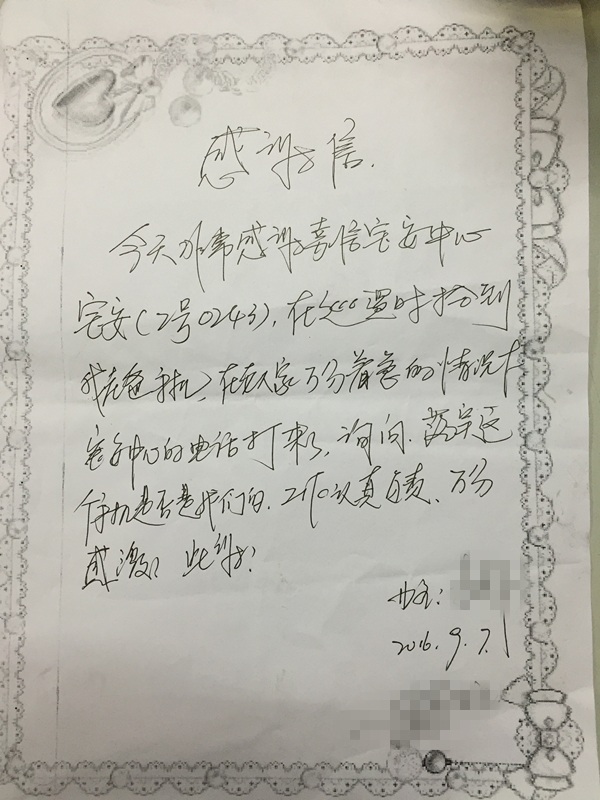 感谢信.
今天非常感谢嘉信宝安中心
宝安(2号0243).在巡逻时拾到
我老爸手机,在老人家万分着急的情况下
客务中心的电话打来,询问.
手机是否是我们的.工作认真负责.万分
感激! 此致!
业主:
2016.9.7.